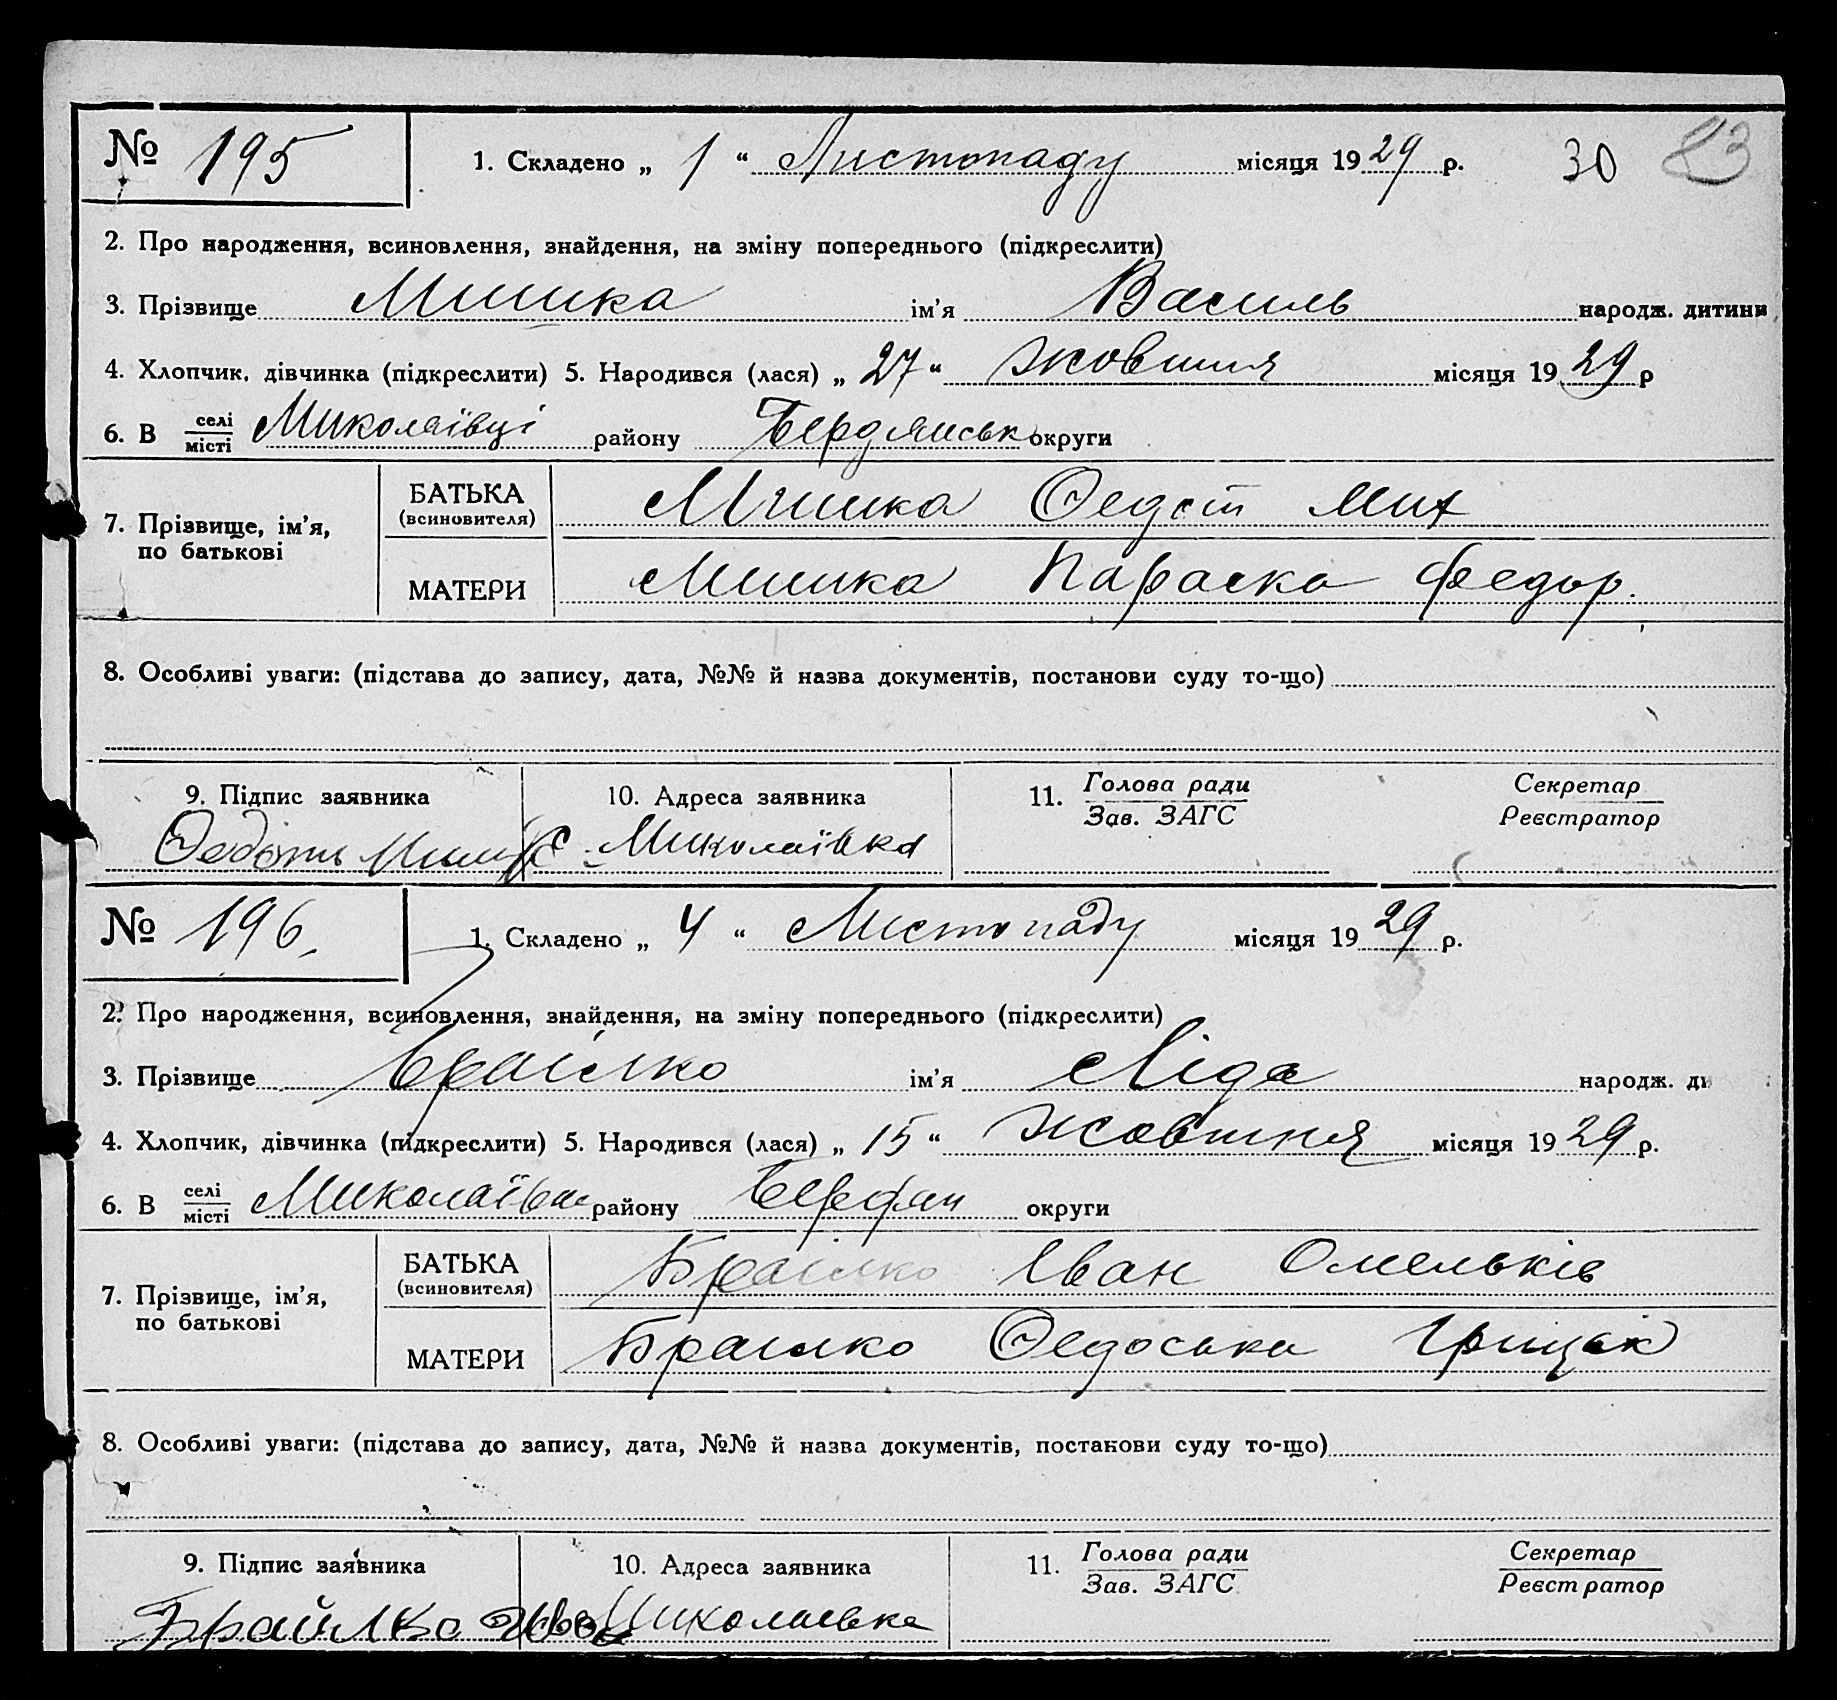 № 195 1. Складено „ 1 “ Листопаду місяця 1929 р. 30 83
2. Про народження, всиновлення, знайдення, на зміну попереднього (підкреслити)
3. Прізвище Мишка ім’я Василь народж. дитини
4. Хлопчик, дівчинка (підкреслити) 5. Народився (лася) „ 27 “ жовтня місяця 1929 р
6. В селі місті Миколаївці району Бердянськ округи
7. Прізвище, ім’я, по батькові
БАТЬКА (всиновителя) Мишка Федот Мих
МАТЕРИ Мишка Параска Федор.
8. Особливі уваги: (підстава до запису, дата, №№ й назва документів, постанови суду то-що)
9. Підпис заявника 10. Адреса заявника 11. Голова ради Секретар
Зав. ЗАГС Реєстратор
Федоть с. Миколаївка
№ 196. 1. Складено „ 4 “ Листопаду місяця 1929 р.
2. Про народження, всиновлення, знайдення, на зміну попереднього (підкреслити)
3. Прізвище Браілко ім’я Ліда народж. ди
4. Хлопчик, дівчинка (підкреслити) 5. Народився (лася) „ 15 “ жовтня місяця 1929 р.
6. В селі місті Миколаївка району Бердян округи
7. Прізвище, ім’я, по батькові
БАТЬКА (всиновителя) Браілко Іван Омельків
МАТЕРИ Браілко Федоська Гриц
8. Особливі уваги: (підстава до запису, дата, №№ й назва документів, постанови суду то-що)
9. Підпис заявника 10. Адреса заявника 11. Голова ради Секретар
Зав. ЗАГС Реєстратор
Брайлко Миколаевка